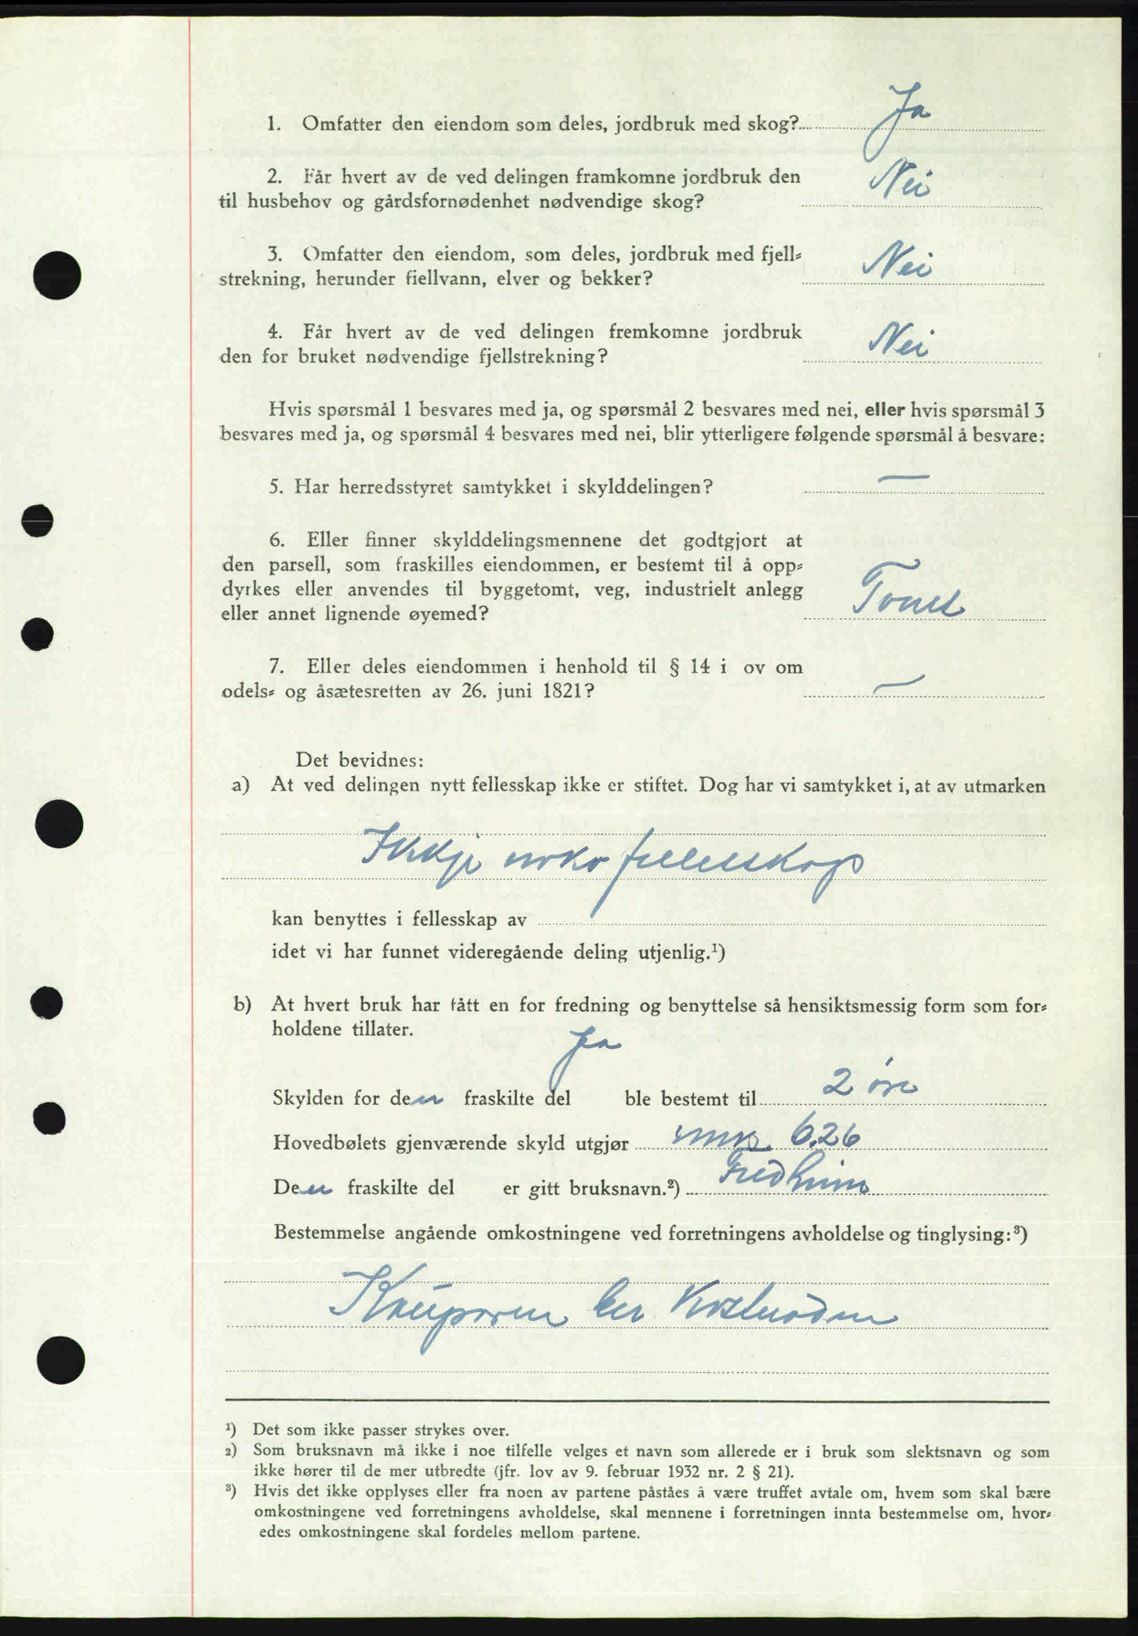 1. Omfatter den eiendom som deles, jordbruk med skog? Ja
2. Får hvert av de ved delingen framkomne jordbruk den
til husbehov og gårdsfornødenhet nødvendige skog? Nei
3. Omfatter den eiendom, som deles, jordbruk med fjell-
strekning, herunder fiellvann, elver og bekker? Nei
4. Får hvert av de ved delingen fremkomne jordbruk
den for bruket nødvendige fjellstrekning? Nei
Hvis spørsmål 1 besvares med ja, og spørsmål 2 besvares med nei, eller hvis spørsmål 3
besvares med ja, og spørsmål 4 besvares med nei, blir ytterligere følgende spørsmål å besvare:
5. Har herredsstyret samtykket i skylddelingen? —
6. Eller finner skylddelingsmennene det godtgjort at
den parsell, som fraskilles eiendommen, er bestemt til å opp-
dyrkes eller anvendes til byggetomt, veg, industrielt anlegg
eller annet lignende øyemed? Tomt
7. Eller deles eiendommen i henhold til § 14 i ov om
odels- og åsætesretten av 26. juni 1821? —
Det bevidnes:
a) At ved delingen nytt fellesskap ikke er stiftet. Dog har vi samtykket i, at av utmarken
Ikkje noko fellesskap
kan benyttes i fellesskap av
idet vi har funnet videregående deling utjenlig.¹)
b) At hvert bruk har fått en for fredning og benyttelse så hensiktsmessig form som for-
holdene tillater. Ja
Skylden for den fraskilte del ble bestemt til 2 øre
Hovedbølets gjenværende skyld utgjør 6.26
Den fraskilte del er gitt bruksnavn.²) Fredheim
Bestemmelse angående omkostningene ved forretningens avholdelse og tinglysing:³)
Kjøuparen ber Kostnaden
¹) Det som ikke passer strykes over.
²) Som bruksnavn må ikke i noe tilfelle velges et navn som allerede er i bruk som slektsnavn og som
ikke hører til de mer utbredte (jfr. lov av 9. februar 1932 nr. 2 § 21).
³) Hvis det ikke opplyses eller fra noen av partene påståes å være truffet avtale om, hvem som skal bære
omkostningene ved forretningens avholdelse, skal mennene i forretningen innta bestemmelse om, hvor-
edes omkostningene skal fordeles mellom partene.